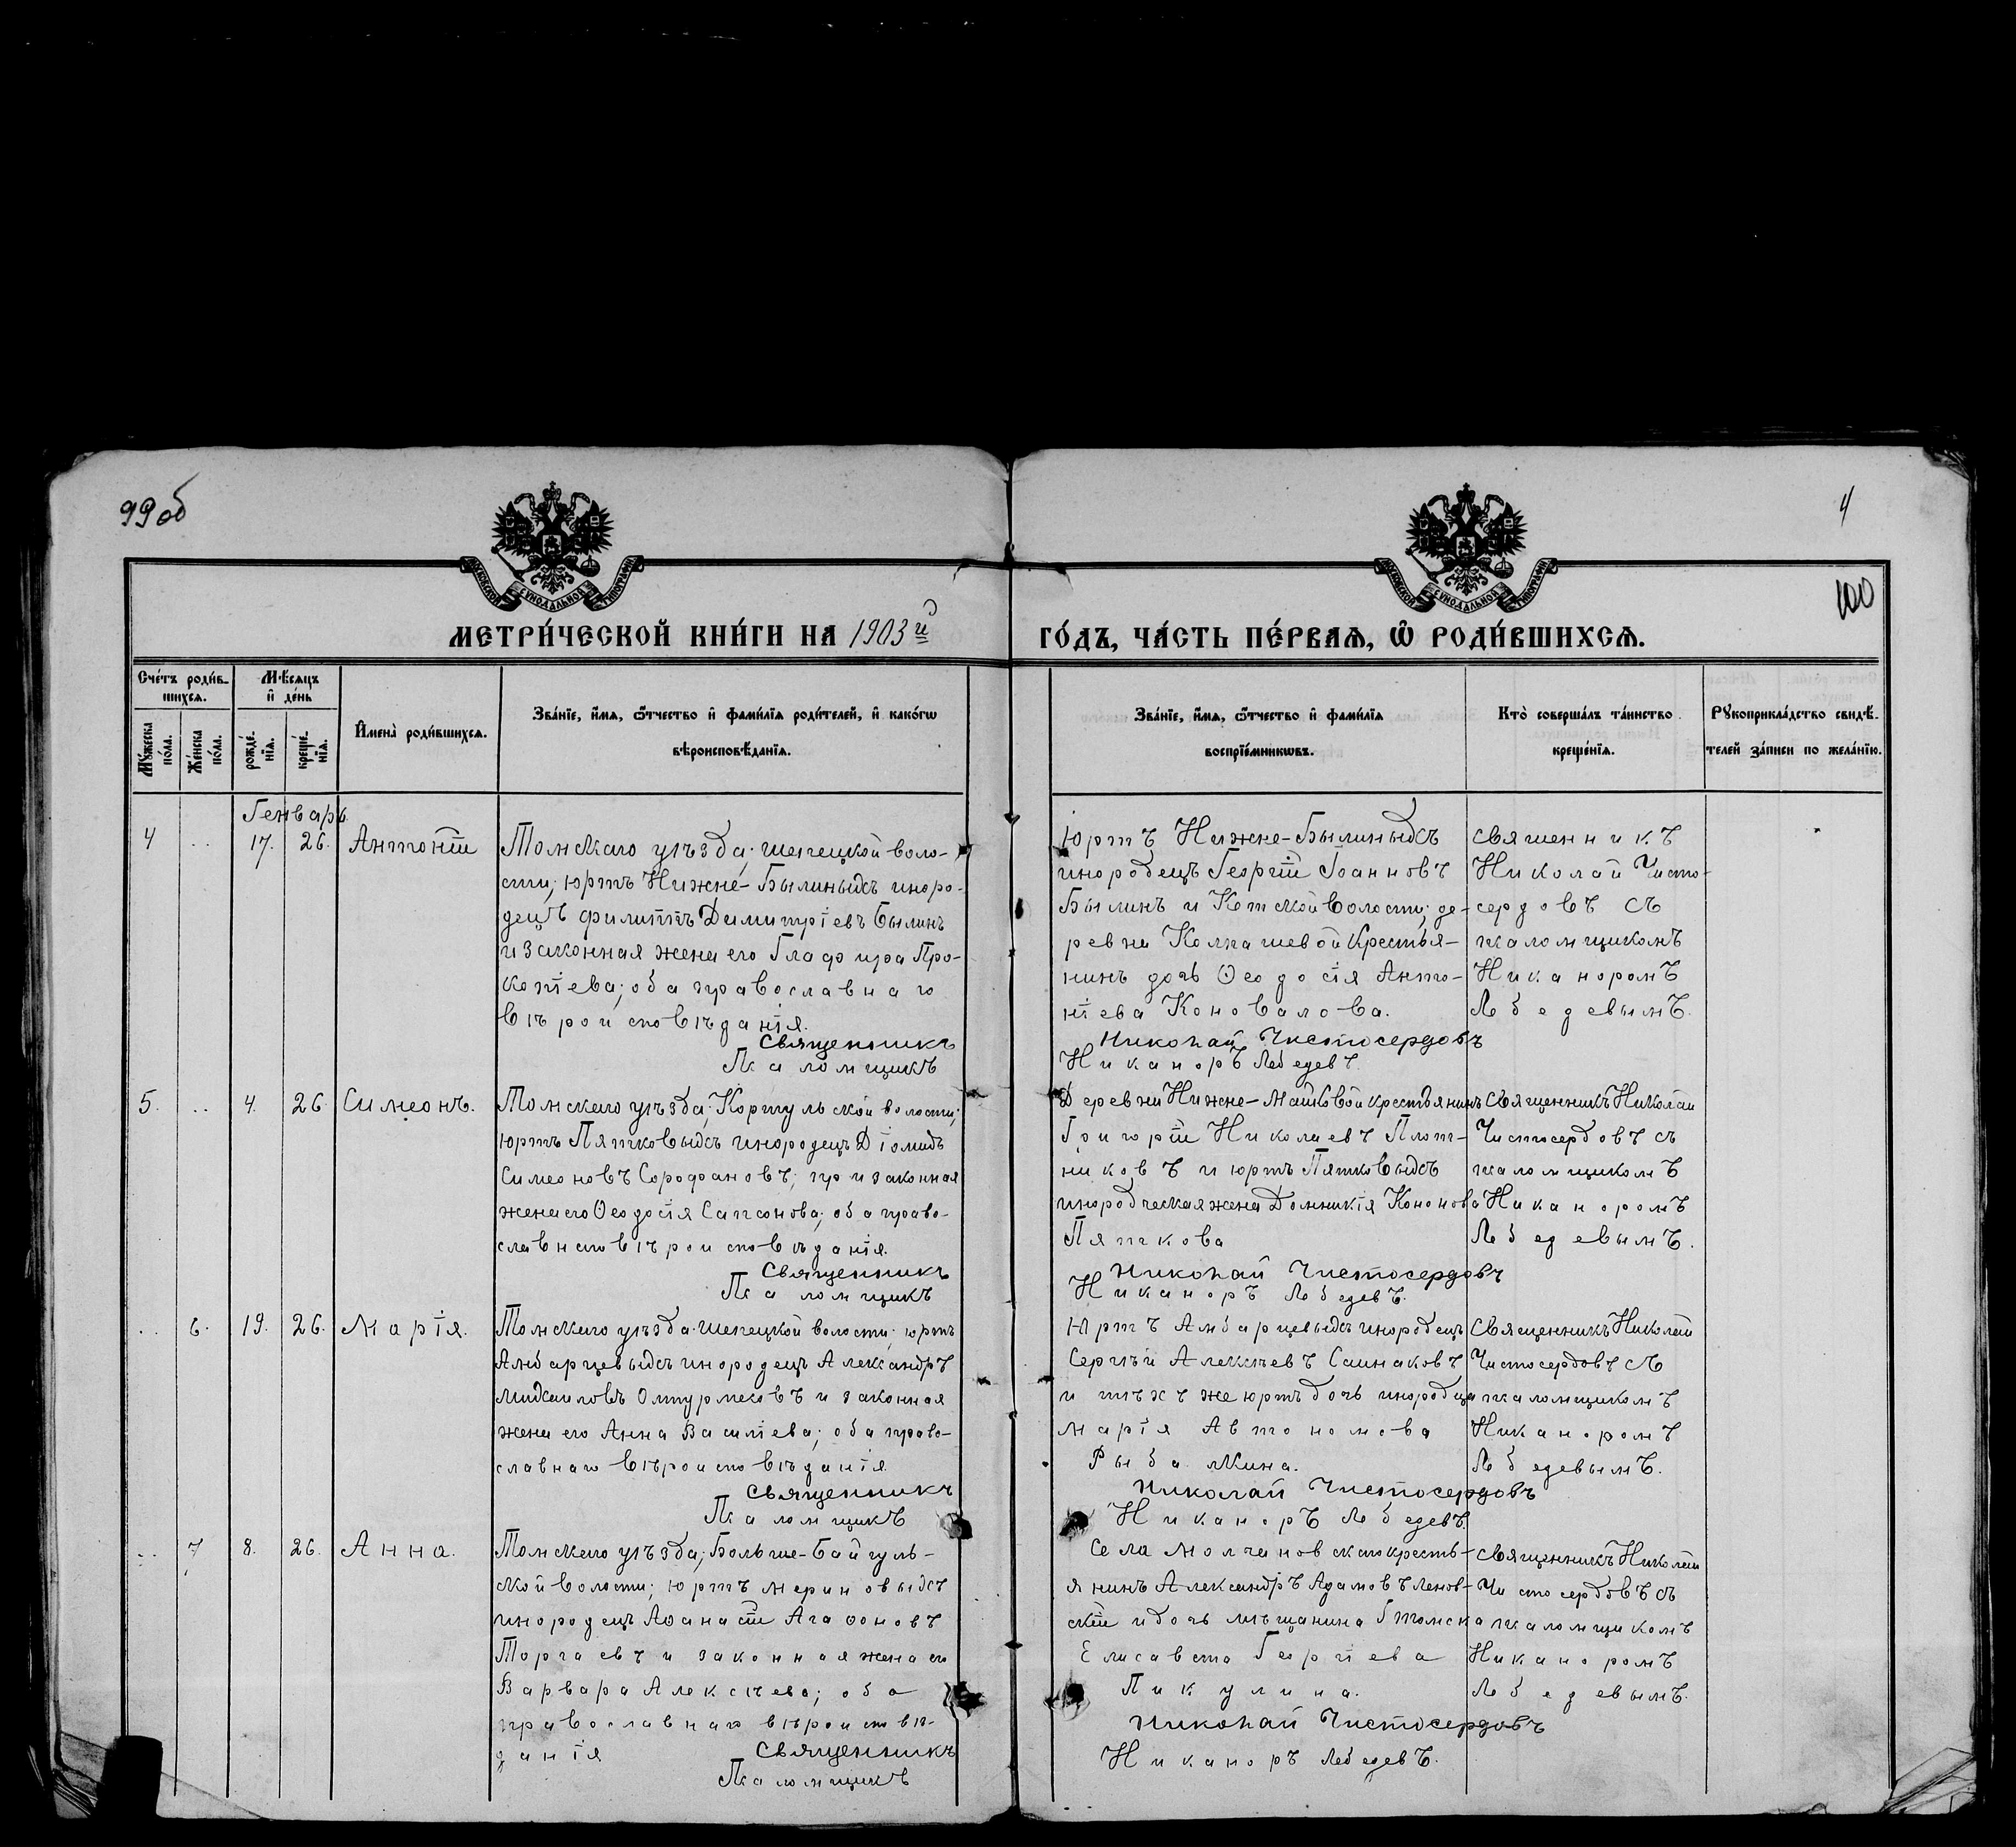 99 об
4
100
МОСКОВСКОЙ СѴНОДАЛЬНОЙ ТИПОГРАФІИ
МОСКОВСКОЙ СѴНОДАЛЬНОЙ ТИПОГРАФІИ
МЕТРИ́ЧЕСКОЙ КНИ́ГИ НА 1903 й ГО́ДЪ, ЧА́СТЬ ПЕ́РВАѦ, Ѡ҆ РОДИ́ВШИХСѦ.
Сче́тъ роди́в-
шихсѧ.
Мꙋ́жеска по́ла.
Же́нска по́ла.
Мѣ́сѧцъ и҆ де́нь
рожде́-нїѧ.
креще́-нїѧ.
И҆мена̀ роди́вшихсѧ.
Зва́нїе, и҆́мѧ, ѻ҆́тчество и҆ фами́лїѧ роди́телей, и҆ како́гѡ
вѣроисповѣ́данїѧ.
Зва́нїе, и҆́мѧ, ѻ҆́тчество и҆ фами́лїѧ
воспрїе́мникѡвъ.
Кто̀ соверша́лъ та́инство
креще́нїѧ.
Рꙋкоприкла́дство свидѣ́-
телей за́писи по жела́нїю.
Генварь
4 .. 17. 26. Антоній
Томскаго уѣзда; Шепецкой воло-
сти; юртъ Нижне-Былиныхъ иноро-
децъ Филиппъ Димитріевъ Былинъ
и законная жена его Глафира Про-
копіева; оба православнаго
вѣроисповѣданія.
Священникъ
Псаломщикъ
Юртъ Нижне-Былиныхъ
инородецъ Георгій Іоанновъ
Былинъ и Кетской волости; де-
ревни Колпашевой крестья-
нинъ дочь Ѳеодосія Анто-
ніева Коновалова.
Николай Чистосердовъ
Никаноръ Лебедевъ
Священникъ
Николай Чисто-
сердовъ съ
псаломщикомъ
Никаноромъ
Лебедевымъ.
5. .. 4. 26 Симеонъ.
Томскаго уѣзда; Кортульской волости;
юртъ Пятковыхъ инородецъ Діомидъ
Симеоновъ Сорофановъ; и законная
жена его Ѳеодосія Сапсонова; оба право-
славнаго вѣроисповѣданія.
Священникъ
Псаломщикъ
Деревни Нижне-Майковой крестьянинъ
Григорій Николаевъ Плот-
никовъ и юртъ Пятковыхъ
инородческая жена Домникія Кононова
Пяткова
Николай Чистосердовъ
Никаноръ Лебедевъ.
Священникъ Николай
Чистосердовъ съ
псаломщикомъ
Никаноромъ
Лебедевымъ.
.. 6. 19. 26. Марія.
Томскаго уѣзда; Шепецкой волости; юртъ
Амбарцевыхъ инородецъ Александръ
Михаиловъ и законная
жена его Анна Василіева; оба право-
славнаго вѣроисповѣданія
Священникъ
Псаломщикъ
Юртъ Амбарцевыхъ инородецъ
Сергѣй Алексѣевъ Саинаковъ
и тѣхъ же юртъ дочь инородца
Марія Автономова
Рыбалкина.
Николай Чистосердовъ
Никаноръ Лебедевъ.
Священникъ Николай
Чистосердовъ съ
псаломщикомъ
Никаноромъ
Лебедевымъ.
.. 7 8. 26. Анна.
Томскаго уѣзда; Больше-Байгуль-
ской волости; юртъ Мериновыхъ
инородецъ Аѳанасій Агаѳоновъ
Торгаевъ и законная жена его
Варвара Алексѣева; оба
православнаго вѣроисповѣ-
данія
Священникъ
Псаломщикъ
Села Молчановскаго кресть-
янинъ Александръ Адамовъ Ленов-
скій и дочь мѣщанина г. Томска
Елисавета Георгіева
Пикулина.
Николай Чистосердовъ
Никаноръ Лебедевъ.
Священникъ Николай
Чистосердовъ съ
псаломщикомъ
Никаноромъ
Лебедевымъ.